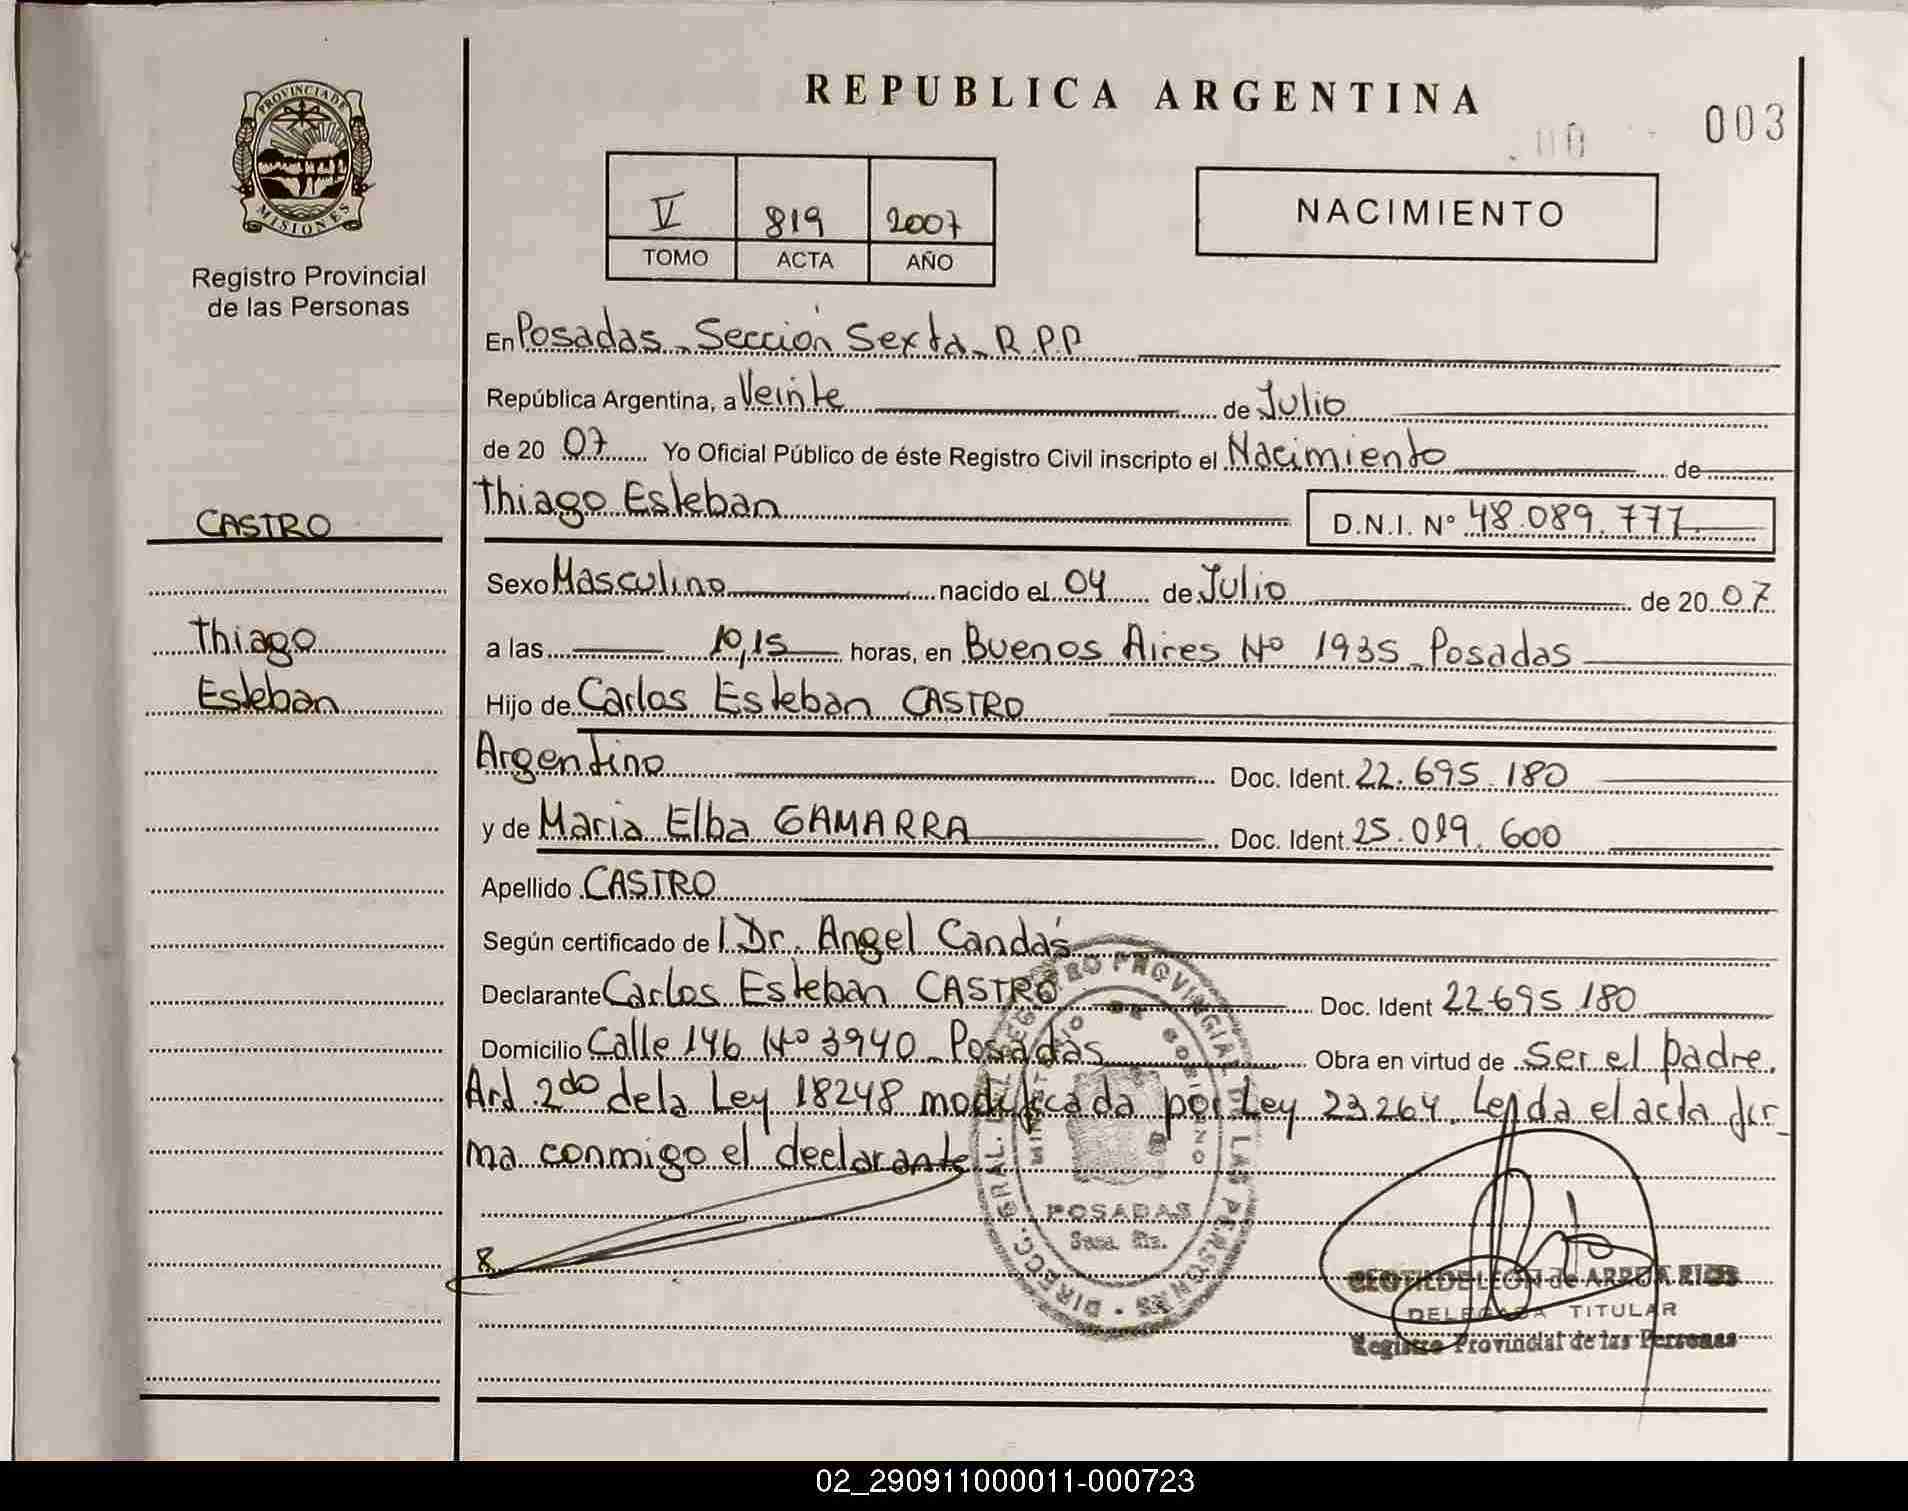 REPUBLICA ARGENTINA
003
PROVINCIA DE
MISIONES
Registro Provincial
de las Personas
V 819 2007
TOMO ACTA AÑO
NACIMIENTO
En Posadas - Sección Sexta - R.P.P
República Argentina, a Veinte de Julio
de 20 07 Yo Oficial Público de éste Registro Civil inscripto el Nacimiento de
CASTRO
Thiago
Esteban
Thiago Esteban D.N.I. Nº 48.089.777
Sexo Masculino nacido el 04 de Julio de 20 07
a las 10,15 horas, en Buenos Aires Nº 1935 - Posadas
Hijo de Carlos Esteban CASTRO
Argentino Doc. Ident. 22.695.180
y de Maria Elba GAMARRA Doc. Ident. 25.019.600
Apellido CASTRO
Según certificado de Dr. Angel Candás
Declarante Carlos Esteban CASTRO Doc. Ident 22.695.180
Domicilio Calle 146 Nº 3940 - Posadas Obra en virtud de Ser el padre.
Art 2do de la Ley 18248 modificada por Ley 23.264. Leída el acta fir-
ma conmigo el declarante
DIRECC. GRAL. DEL REGISTRO PROVINCIAL DE LAS PERSONAS
MINISTERIO DE GOBIERNO
POSADAS
CLOTILDE LEON de ARRUA RIOS
DELEGADA TITULAR
Registro Provincial de las Personas
02_290911000011-000723